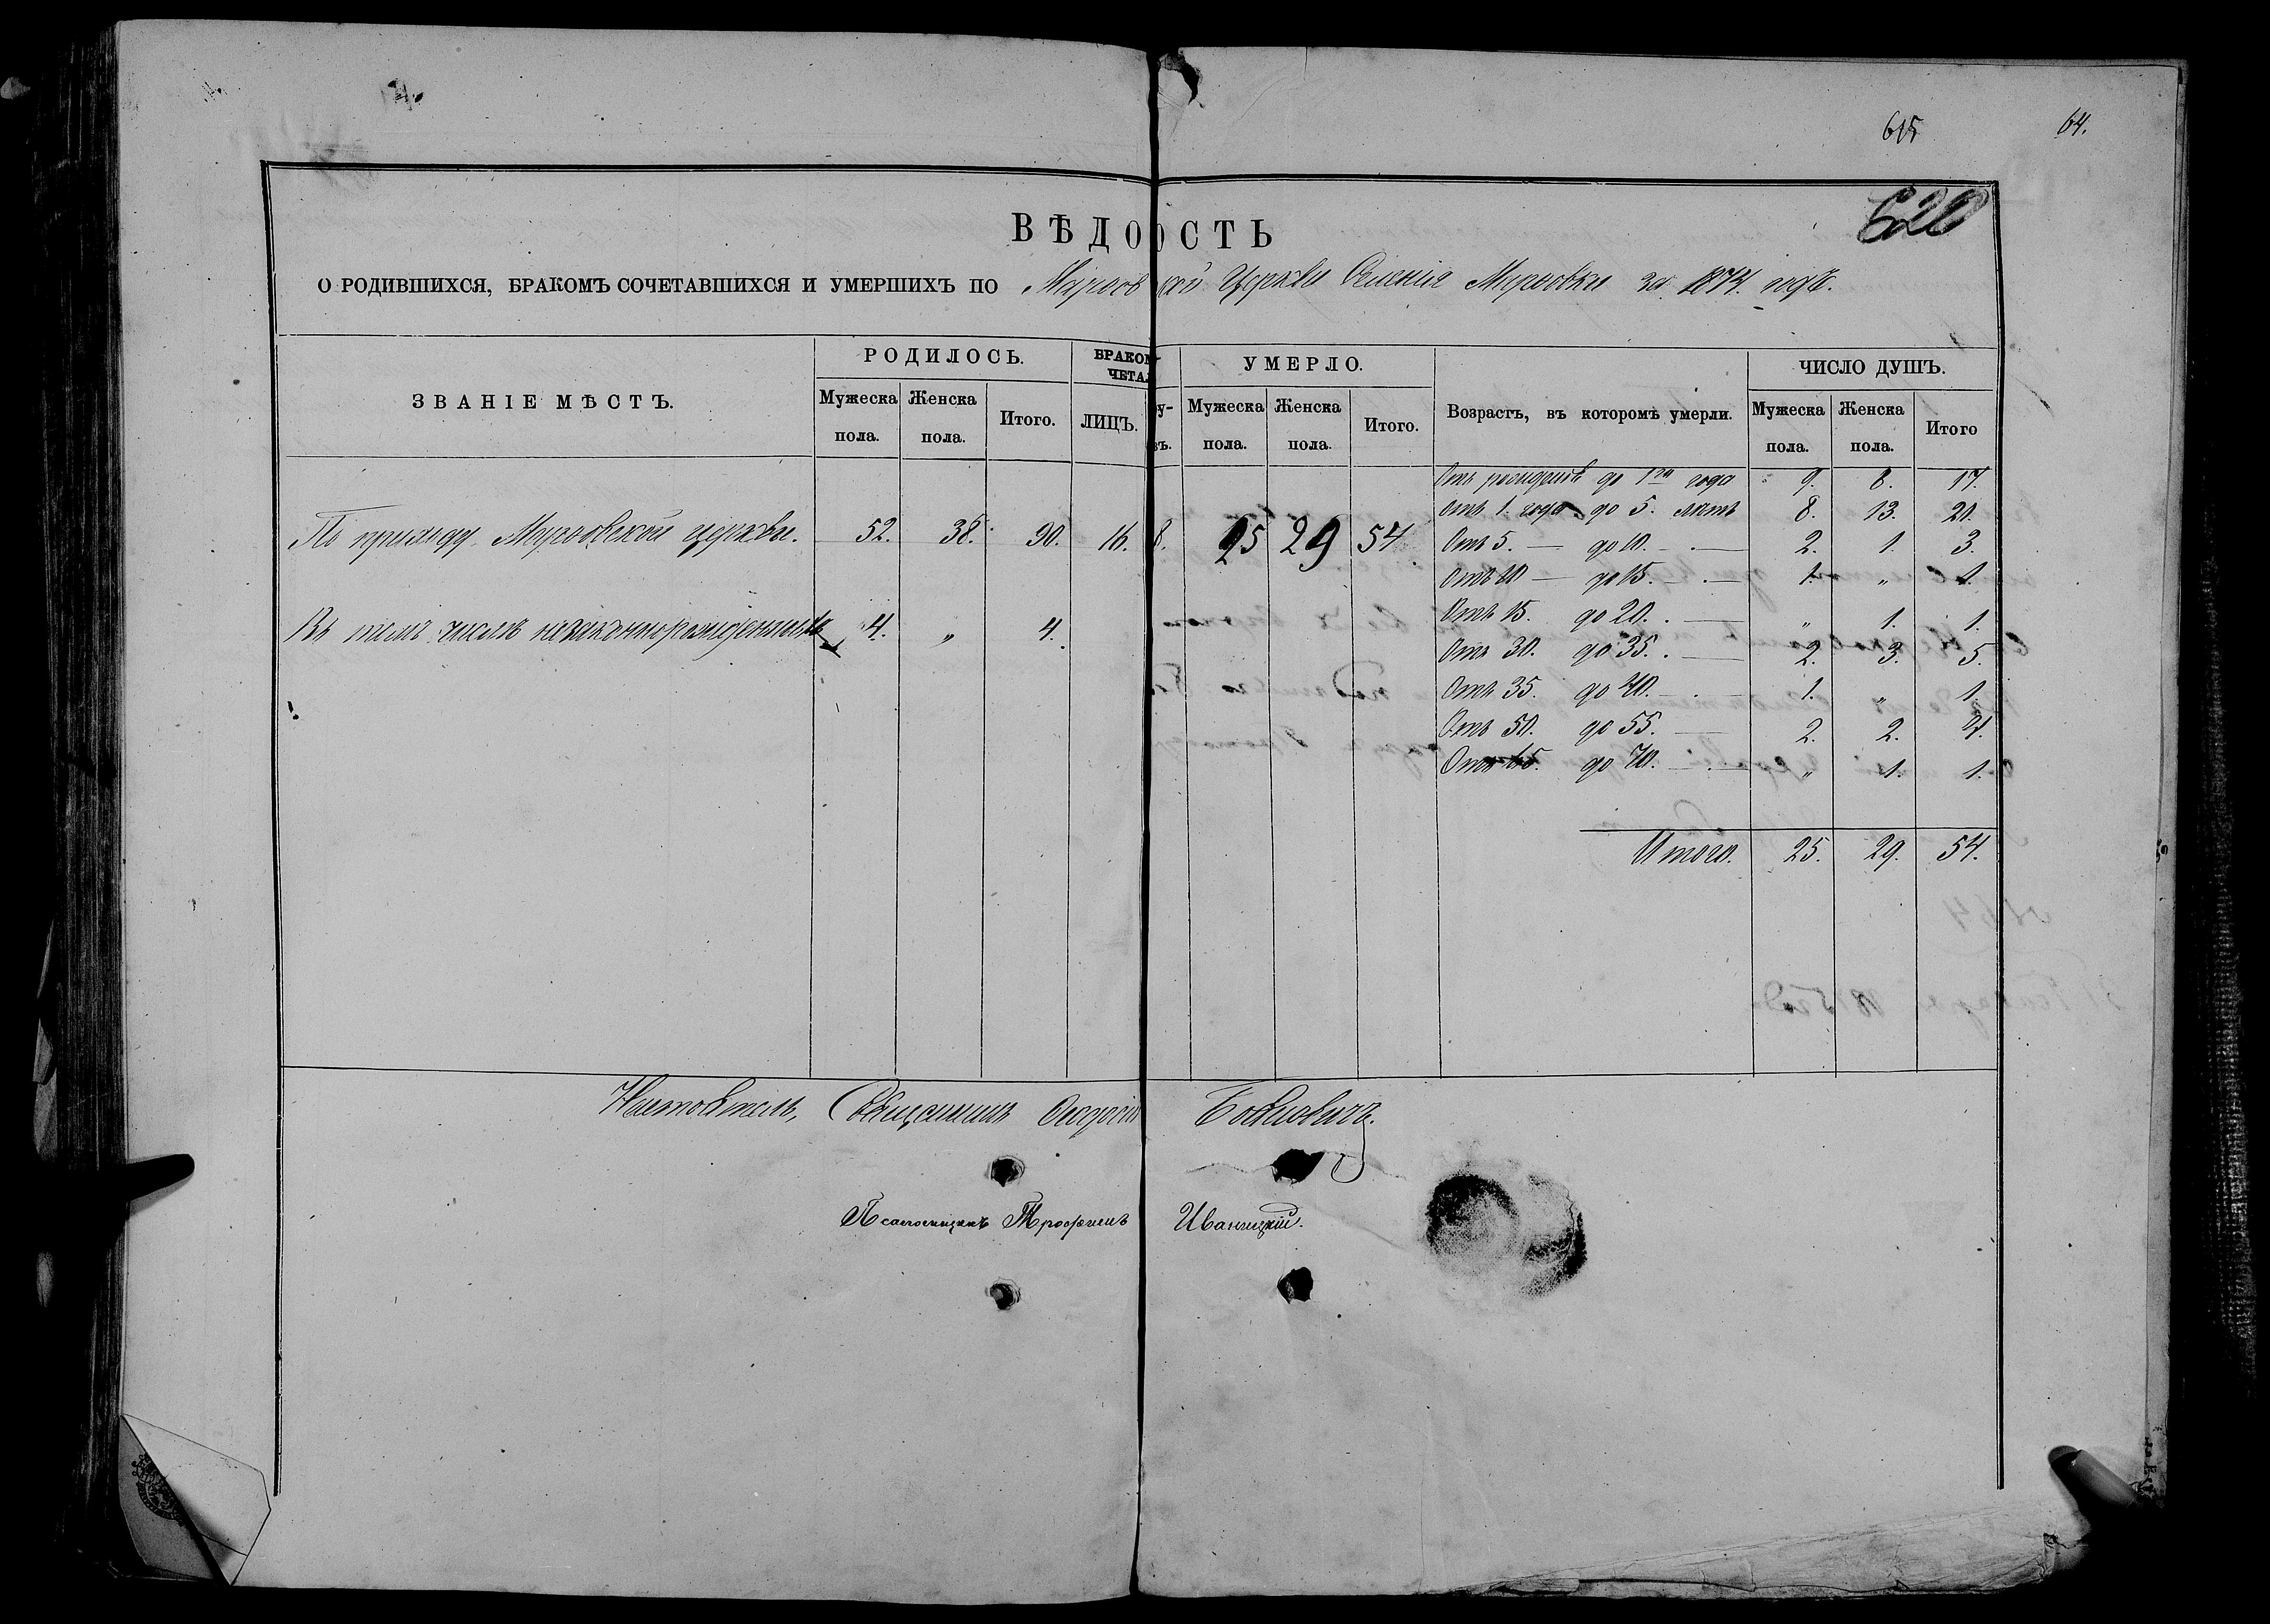 615 64.
620
ВѢДО ОСТЬ
О РОДИВШИХСЯ, БРАКОМЪ СОЧЕТАВШИХСЯ И УМЕРШИХЪ ПО Церкви Селенія за 1874. годъ.
ЗВАНІЕ МѢСТЪ. РОДИЛОСЬ. БРАКОМ ЧЕТА УМЕРЛО. Возрастъ, въ которомъ умерли. ЧИСЛО ДУШЪ.
Мужеска пола. Женска пола. Итого. ЛИЦЪ. у- въ. Мужеска пола. Женска пола. Итого. Мужеска пола. Женска пола. Итого
Отъ рожденія до 1го года 9. 8. 17.
Отъ 1. года до 5. лѣтъ 8. 13. 21.
По приходу церкви. 52. 38. 90. 16. 8. 25 29 54
Отъ 5. — до 10. — 2. 1. 3.
Отъ 10 — до 15. — 1. „ 1.
Отъ 15. до 20. — „ 1. 1.
Въ томъ числѣ незаконнорожденныхъ 4. „ 4.
Отъ 30. до 35. — 2. 3. 5.
Отъ 35. до 40. — 1. „ 1.
Отъ 50. до 55. — 2. 2. 4.
Отъ 65. до 70. — „ 1. 1.
Итого. 25. 29. 54.
Настоятель, Священникъ Георгій
Псаломщикъ Трофимъ Иваницкій.